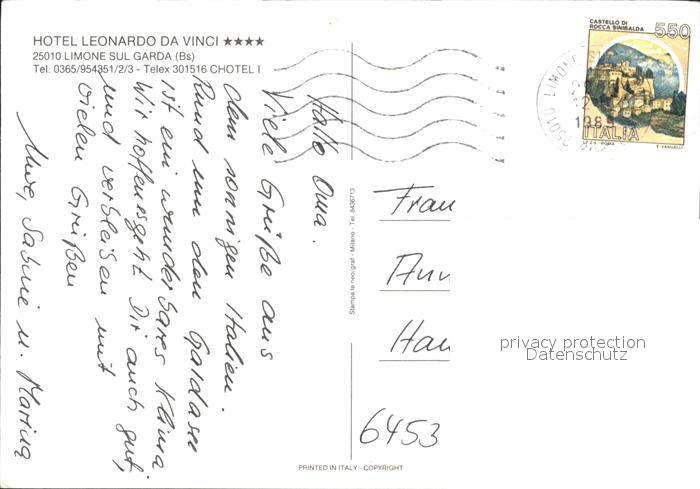 HOTEL LEONARDO DA VINCI ★★★★
25010 LIMONE SUL GARDA (Bs)
Tel. 0365/954351/2/3 - Telex 301516 CHOTEL I
Hallo Oma.
Viele Grüße aus
dem sonnigen Italien.
Rund um den Gardasee
ist ein wunderbares Klima
Wir hoffen es geht Dir auch gut,
und verbleiben mit
vielen Grüßen
Uwe, Sabine u. Marina
Stampa la neo/graf - Milano - Tel. 8436713
CASTELLO DI
ROCCA SINIBALDA
550
ITALIA
E. VANGELLI
25010 LIMONE S
198
Frau
Ann
Han
6453
privacy protection
Datenschutz
PRINTED IN ITALY - COPYRIGHT